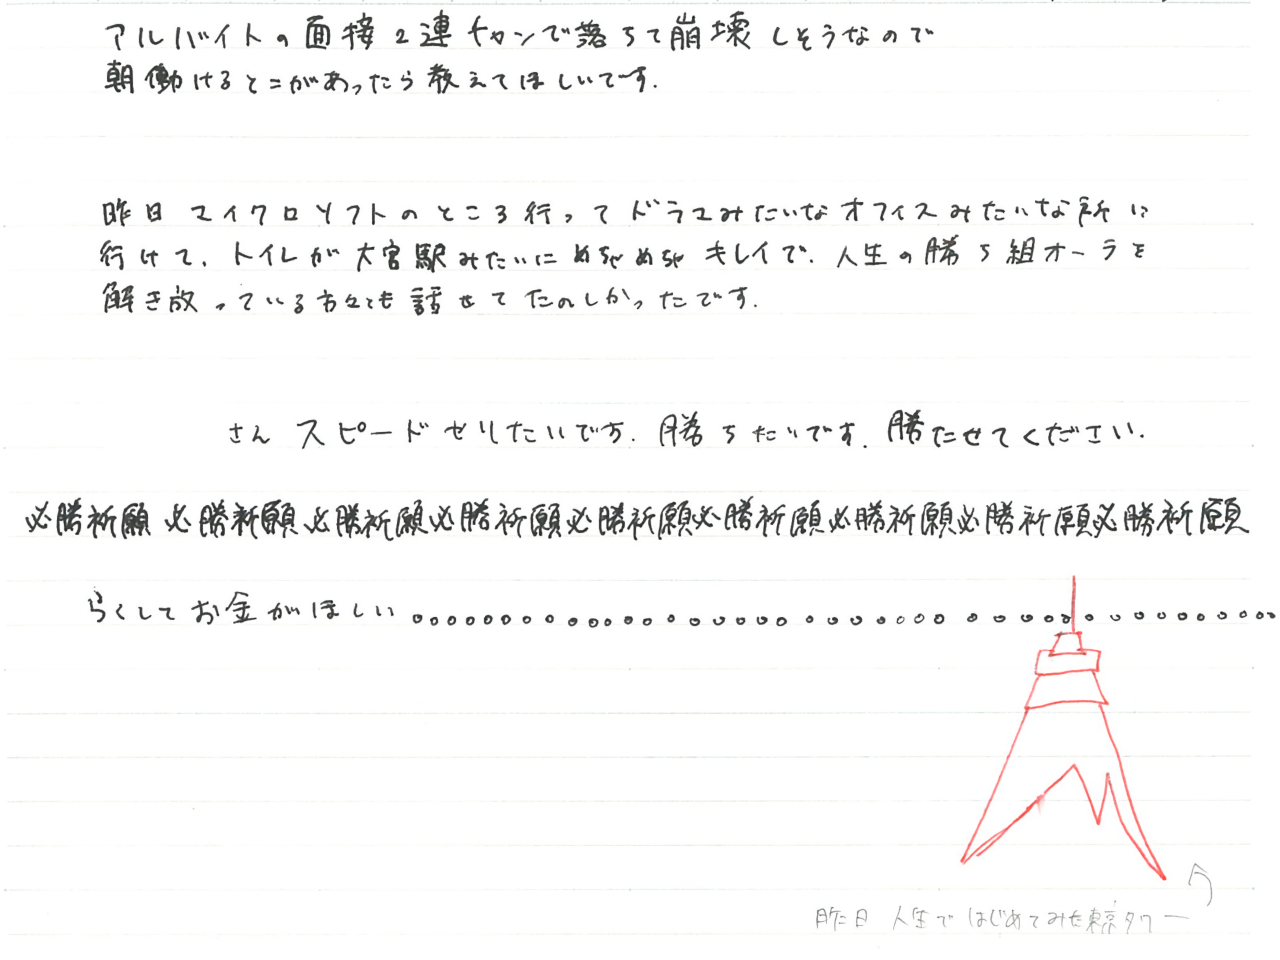 アルバイトの面接2連チャンで落ちて崩壊しそうなので
朝働けるとこがあったら教えてほしいです.
昨日マイクロソフトのところ行ってドラマみたいなオフィスみたいな所に
行けて、トイレが大宮駅みたいにめちゃめちゃキレイで、人生の勝ち組オーラを
解き放っている方々とも話せてたのしかったです.
さんスピードせりたいです. 勝ちたいです. 勝たせてください.
必勝祈願必勝祈願必勝祈願必勝祈願必勝祈願必勝祈願必勝祈願必勝祈願必勝祈願
らくしてお金がほしい。。。。。。。。。。。。。。。。。。。。。。。。。。。。。。。。。。。。。。。。。。
昨日 人生ではじめてみた東京タワー